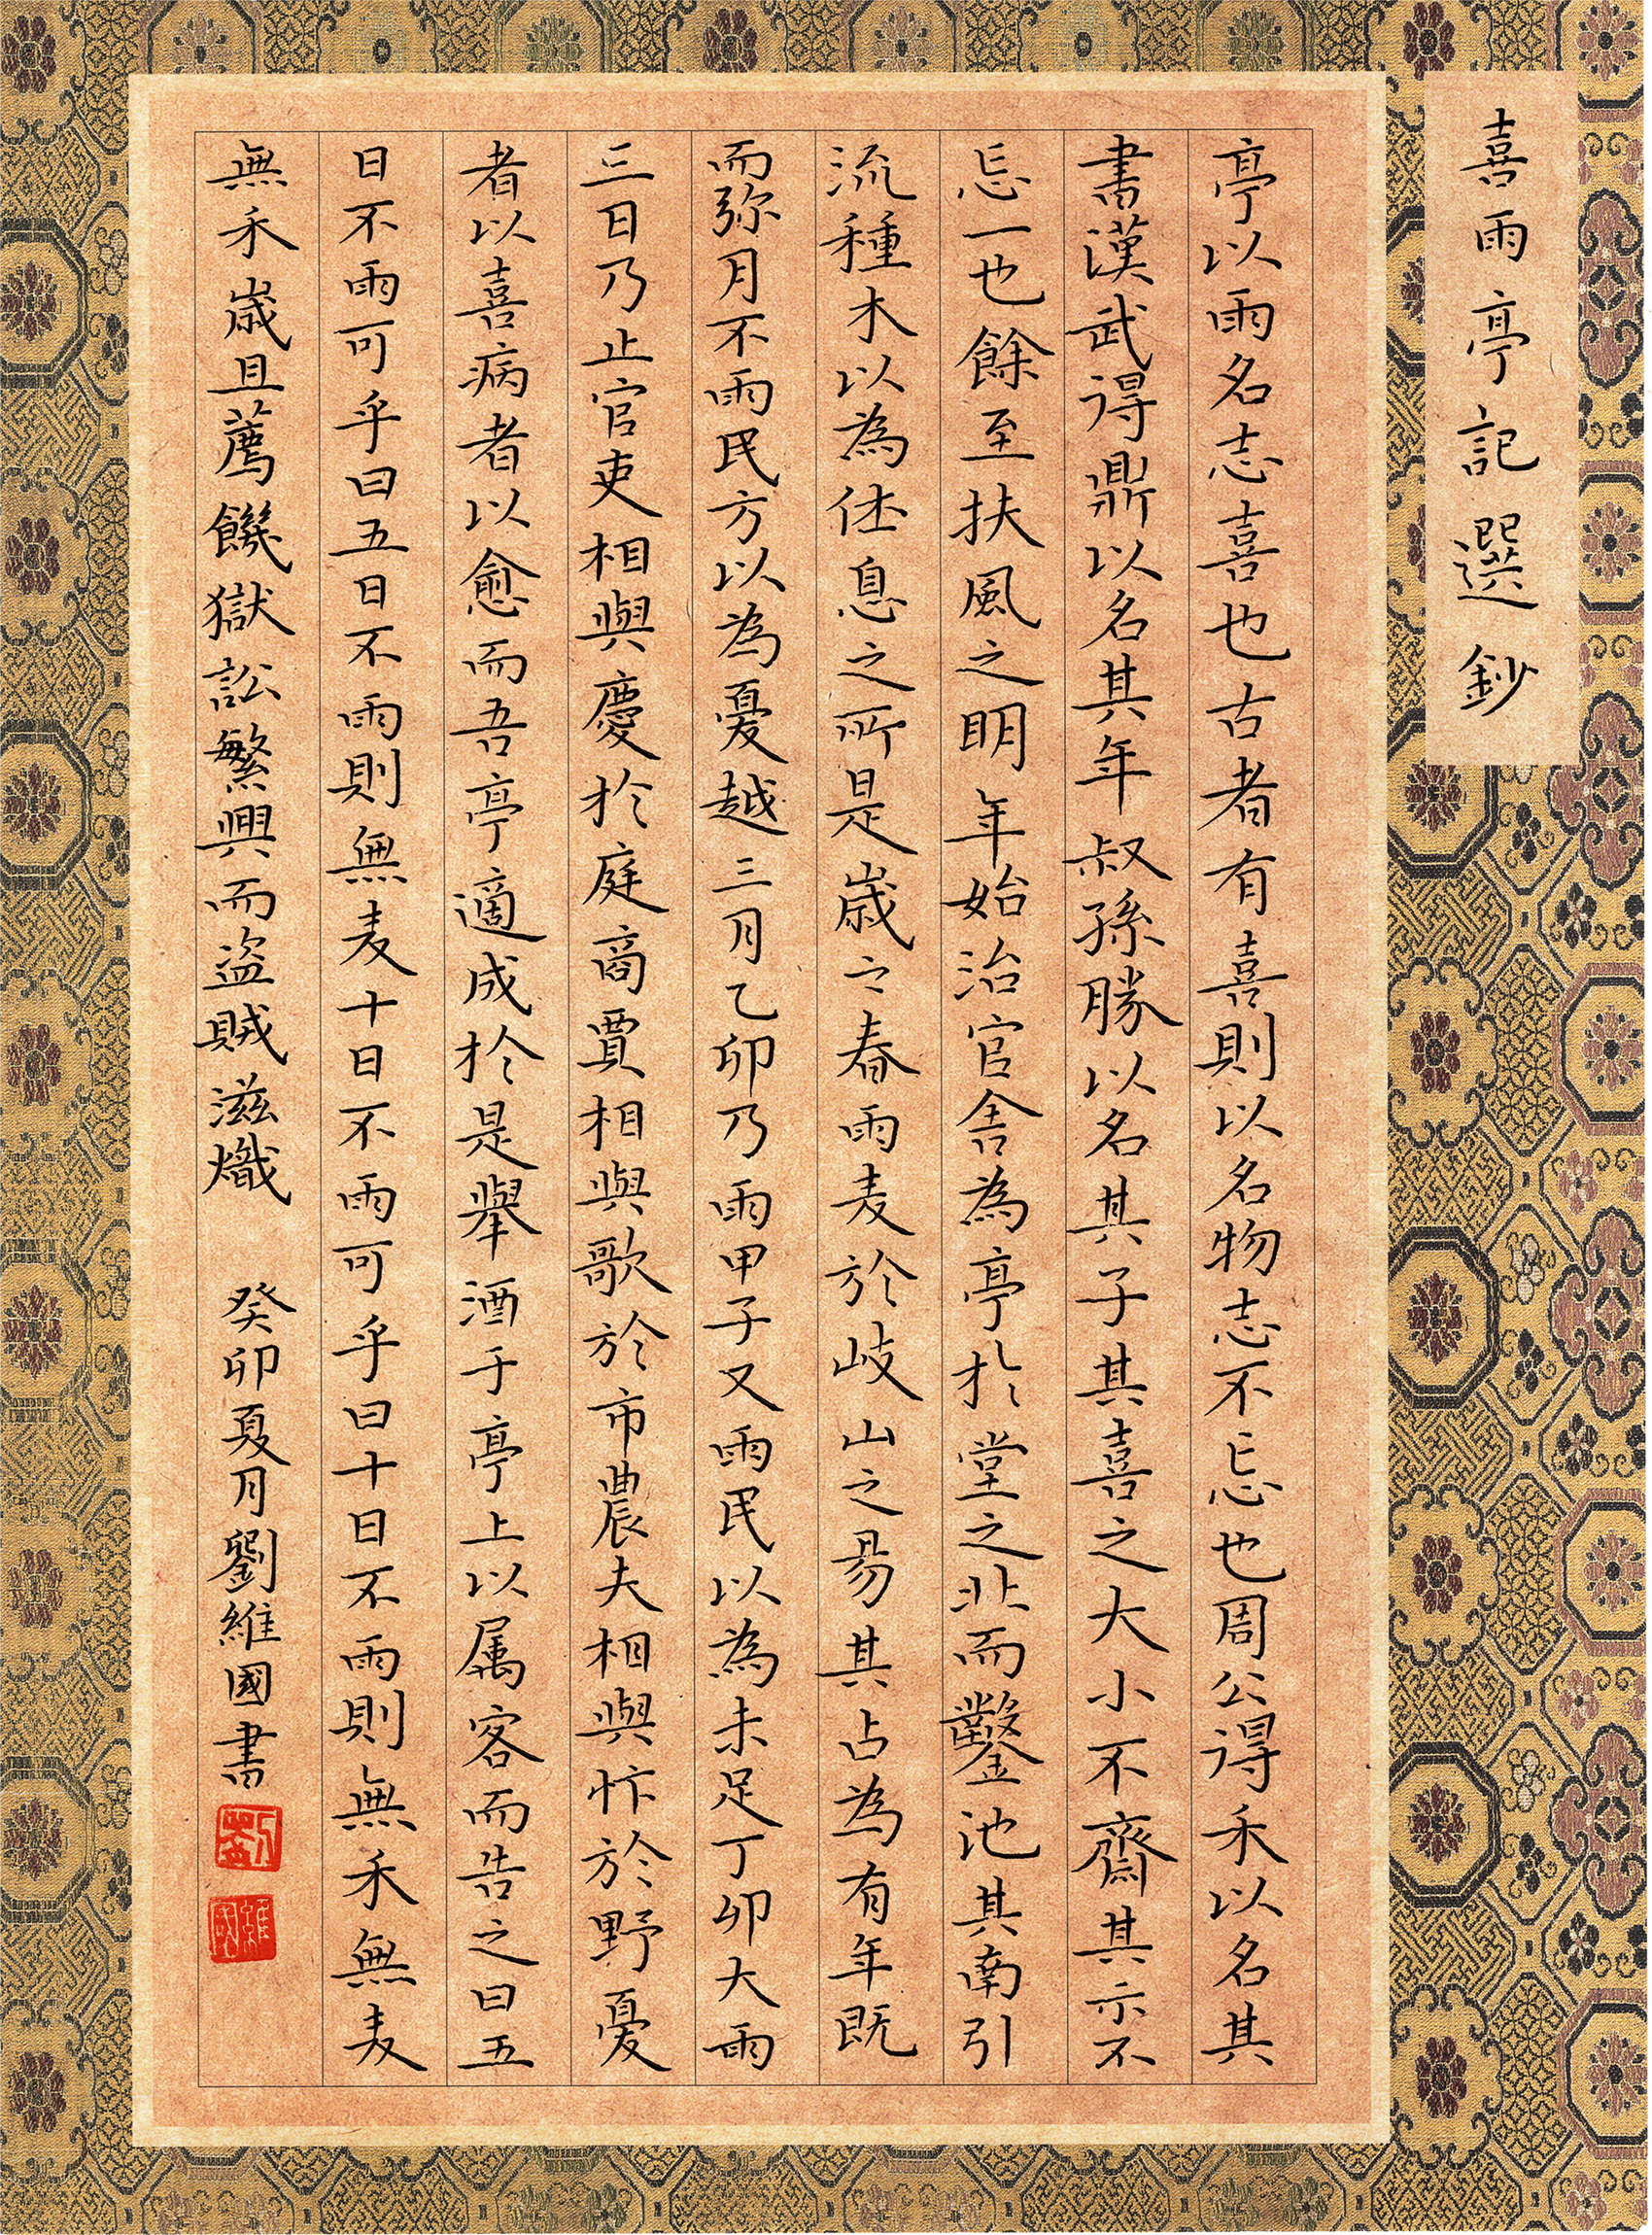 喜雨亭記選鈔
亭以雨名志喜也古者有喜則以名物志不忘也周公得禾以名其
書漢武得鼎以名其年叔孫勝以名其子其喜之大小不齋其示不
忘一也餘至扶風之明年始治官舍為亭於堂之北而鑿池其南引
流種木以為休息之所是歲之春雨麦於岐山之昜其占為有年既
而弥月不雨民方以為憂越三月乙卯乃雨甲子又雨民以為未足丁卯大雨
三日乃止官吏相與慶於庭商賈相與歌於市農夫相與忭於野憂
者以喜病者以愈而吾亭適成於是舉酒于亭上以属客而告之曰五
日不雨可乎曰五日不雨則無麦十日不雨可乎曰十日不雨則無禾無麦
無禾歲且薦饑獄訟繁興而盜賊滋熾 癸卯夏月劉維國書
劉
維國